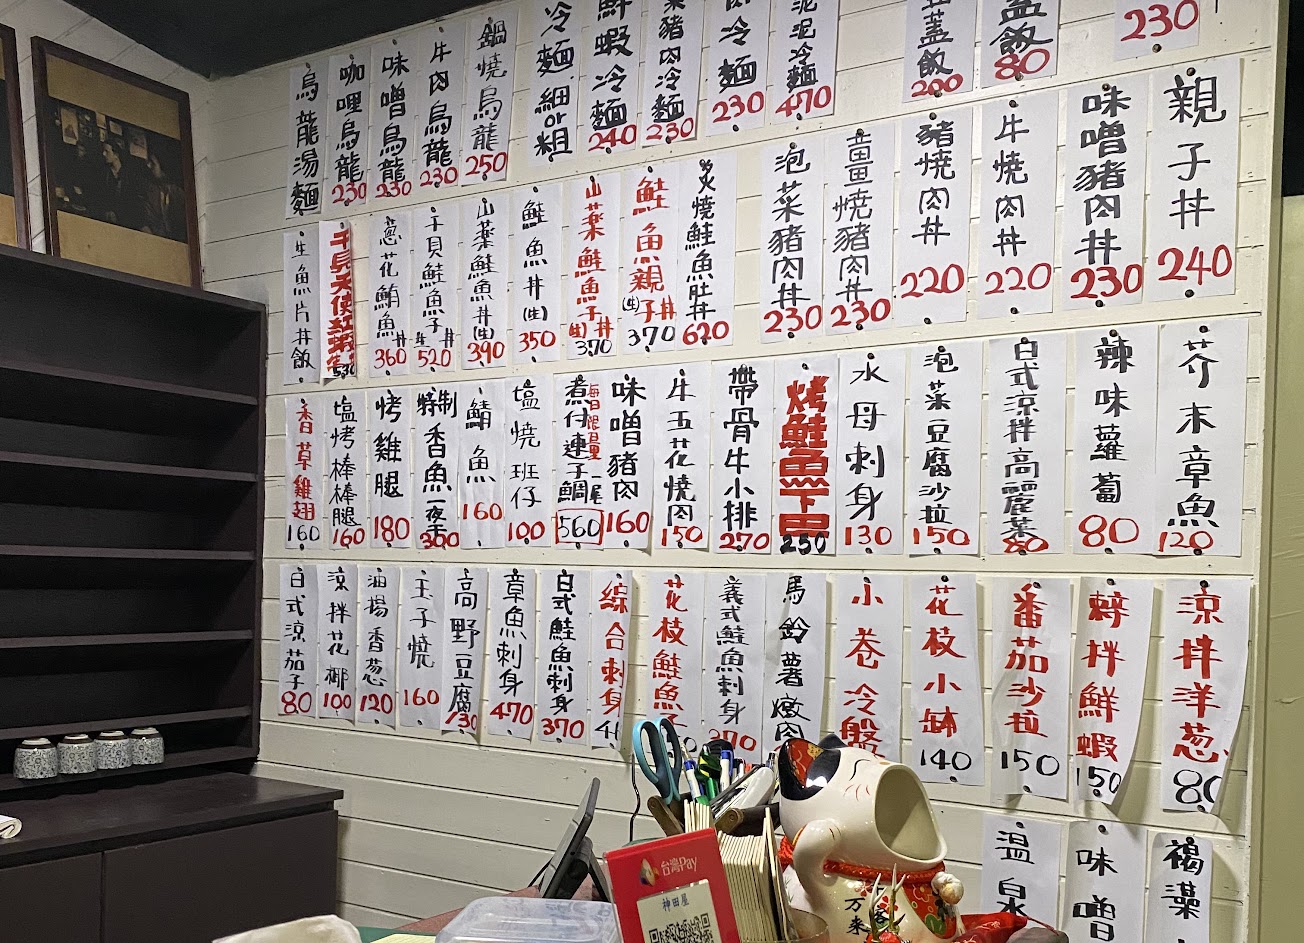 烏龍湯麵
咖哩烏龍 230
味噌烏龍 230
牛肉烏龍 230
鍋燒烏龍 250
冷麵 細or粗
鮮蝦冷麵 240
豬肉冷麵 230
冷麵 230
泥冷麵 470
蓋飯 200
蓋飯 80
230
生魚片丼飯
干貝天使紅蝦
蔥花鮪魚丼 360
干貝鮭魚子丼 520
山藥鮭魚丼(生) 390
鮭魚丼(生) 350
山藥鮭魚子丼(生) 370
鮭魚親子丼(生) 370
炙燒鮭魚肚丼 620
泡菜豬肉丼 230
韮燒豬肉丼 230
豬燒肉丼 220
牛燒肉丼 220
味噌豬肉丼 230
親子丼 240
香草雞翅 160
塩烤棒棒腿 160
烤雞腿 180
特制香魚一夜干 300
鯖魚 160
塩燒班仔 100
煮付連子鯛一尾 每日限量 560
味噌豬肉 160
牛五花燒肉 150
帶骨牛小排 270
烤鮭魚下巴 250
水母刺身 130
泡菜豆腐沙拉 150
日式涼拌高麗菜 80
辣味蘿蔔 80
芥末章魚 120
日式涼茄子 80
涼拌花椰 100
油揚香蔥 120
玉子燒 160
高野豆腐 130
章魚刺身 470
日式鮭魚刺身 370
綜合刺身
花枝鮭魚
義式鮭魚刺身 370
馬鈴薯燉肉
小卷冷盤
花枝小缽 140
番茄沙拉 150
鮮拌鮮蝦 150
涼拌洋蔥 80
溫泉
味噌
褐藻
台灣Pay
神田屋
万来